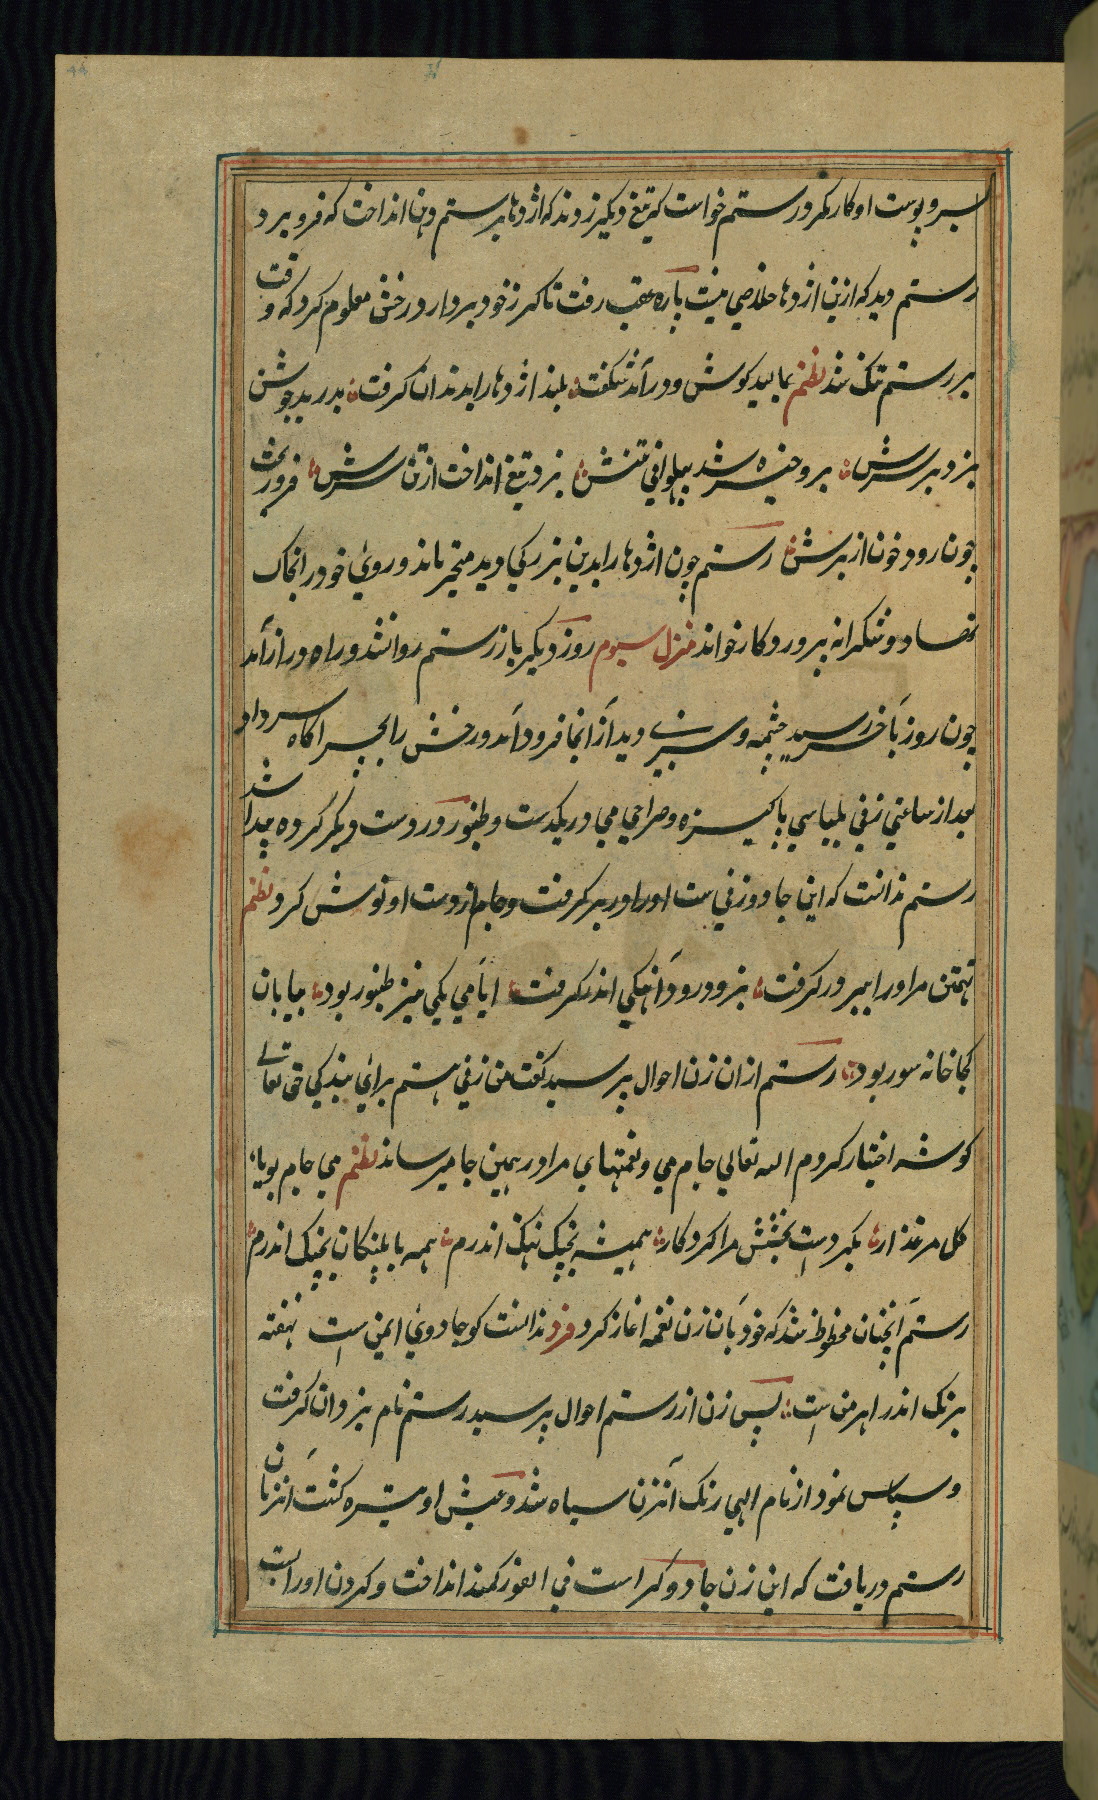 بر پوست او کار نکرد رستم خواست که تیغ دیگر زوند که اژدها بر رستم دهن انداخت که فرو برد
رستم دید که ازین اژدها خلاصی نیست پاره عقب رفت تا گرز خود بردارد رخش معلوم کرد که وقت
بر رستم تنک شد نظم بمالید کوش و درآمد شکفت بلند اژدها را بدندان کرفت بدرید جوشن
بزد بر سرش برو خیره شد پهلوانی تنش بزد تیغ انداخت از تن سرش فرو ریخت
چون رود خون از برش رستم چون اژدها را بدین بزرکی دید متحیر ماند و روی خود را بخاک
نهاد و شکرانه پروردکار خواند منزل سیوم روز دیکر باز رستم روانشد و راه دراز آمد
چون روز بآخر رسید چشمه و سبزی دید از انجا فرود آمد و رخش را بچراکاه سرداد
بعد از ساعتی زنی بلباسی پاکیزه و صراحی می در یکدست و طنبور در دست دیکر کرده پیدا شد
رستم ندانست که این جادو زنی ست او را در بر کرفت و جام از دست او نوش کرد نظم
تهمتن مر او را ببر در کرفت بزد رود و آهنکی اندر کرفت ایا می یکی نیز طنبور بود بیابان
کجا خانه سور بود رستم ازان زن احوال پرسید کفت من زنی هستم برای بندکی حق تعالی
کوشه اختیار کردم الله تعالی جام می و نعمتهای مرا در همین جا میرساند نظم می جام بویا
کل مرغذار نکردست بخشش مرا کردکار همیشه بجنک نهنک اندرم همه با پلنکان بجنک اندرم
رستم آنچنان محظوظ شد که خود بآن زن نغمه اغاز کرد فرد ندانست کو جادوی ایمنی است نهفته
برنک اندر اهرمن است پس زن از رستم احوال پرسید رستم نام یزدان کرفت
و سپاس نمود از نام الهی رنک آنزن سیاه شد و عیش او تیره کشت آنزمان
رستم دریافت که این زن جادوکر است فی الفور کمند انداخت و کردن او را بست